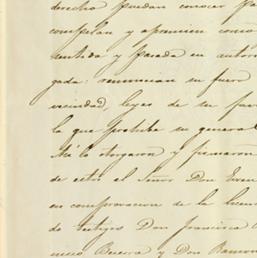 derecho puedan conocer pa
compelan y apremien como
sentida y pasada en autori
gada: renuncian su fuero
vecindad, leyes de su fav
la que prohibe su general
Así lo otorgaron y firmaron
de estos el Señor Don
en comprovacion de la licen
de testigos Don Francisco
Becerra y Don Ramon